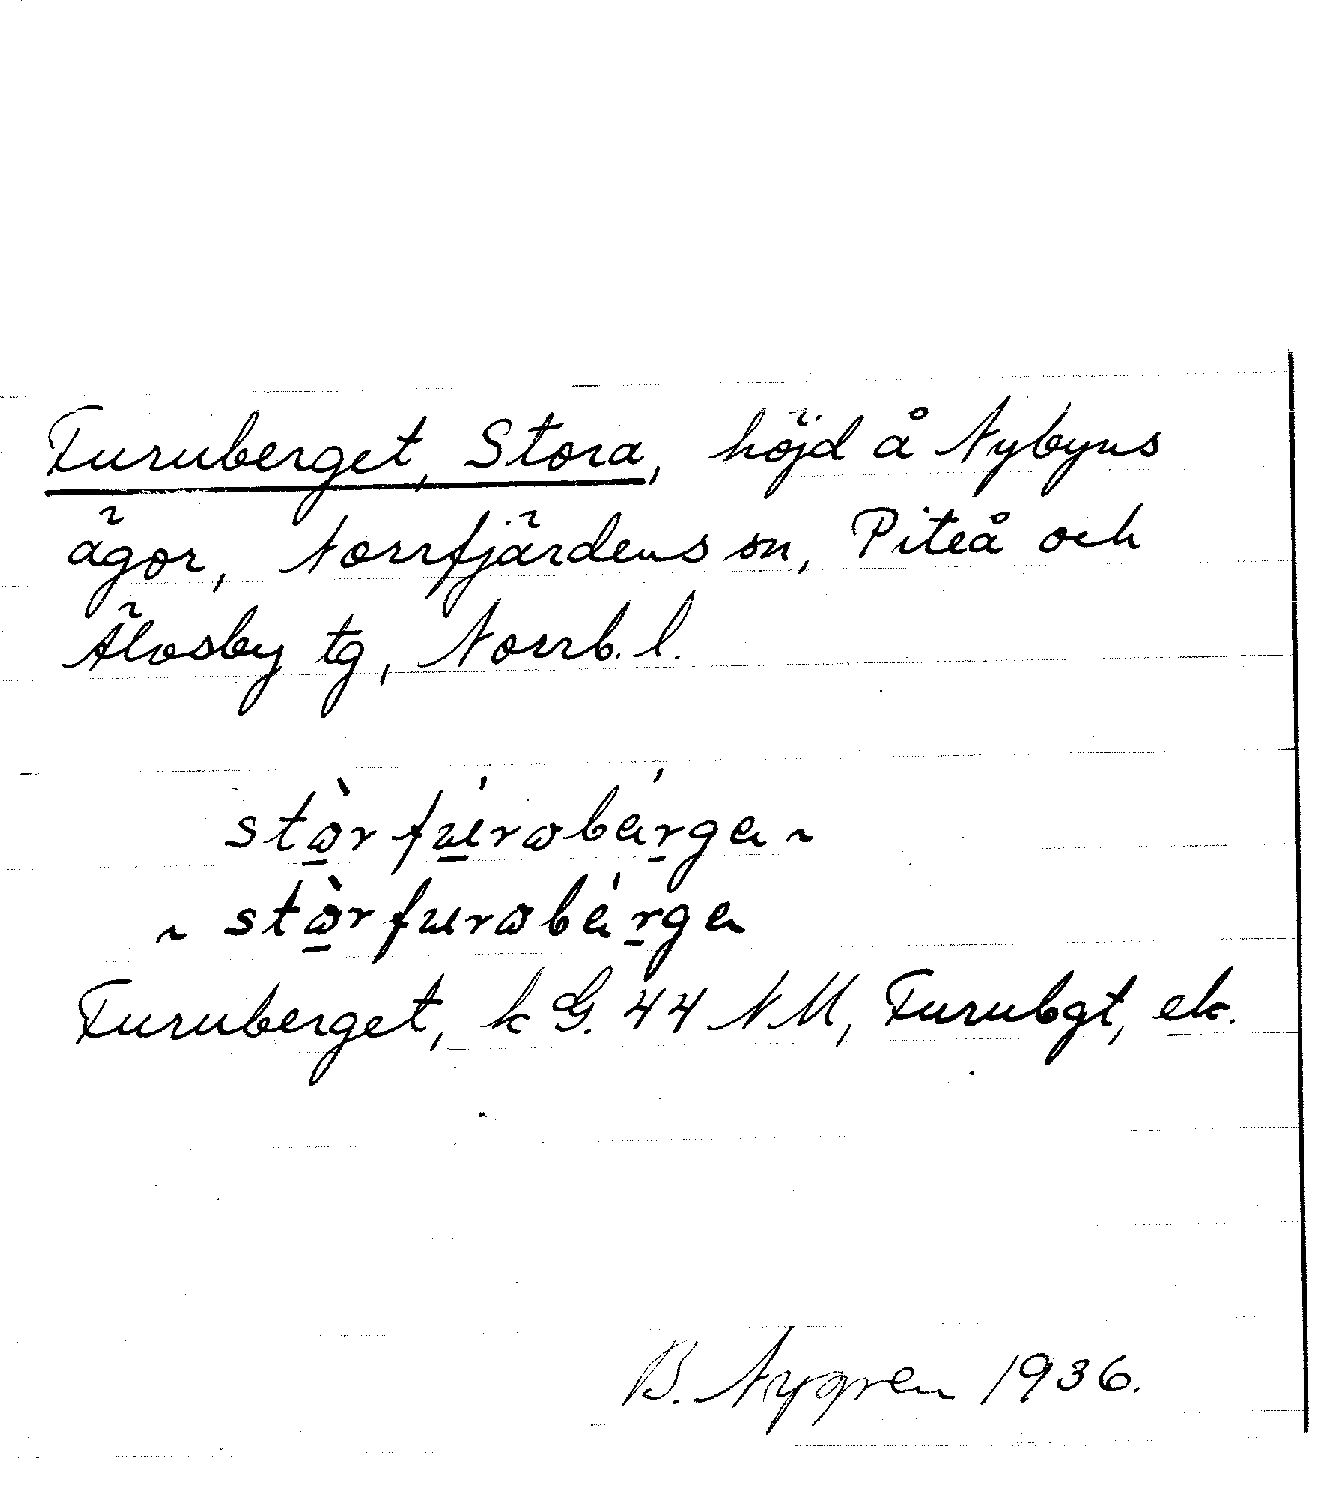 Furuberget, Stora, höjd å Nybyns
ägor, Norrfjärdens sn, Piteå och
Älvsby tg, Norrb. l.
Furuberget, k G. 44 NM, Furubgt, ek.
B. Nygren 1936.